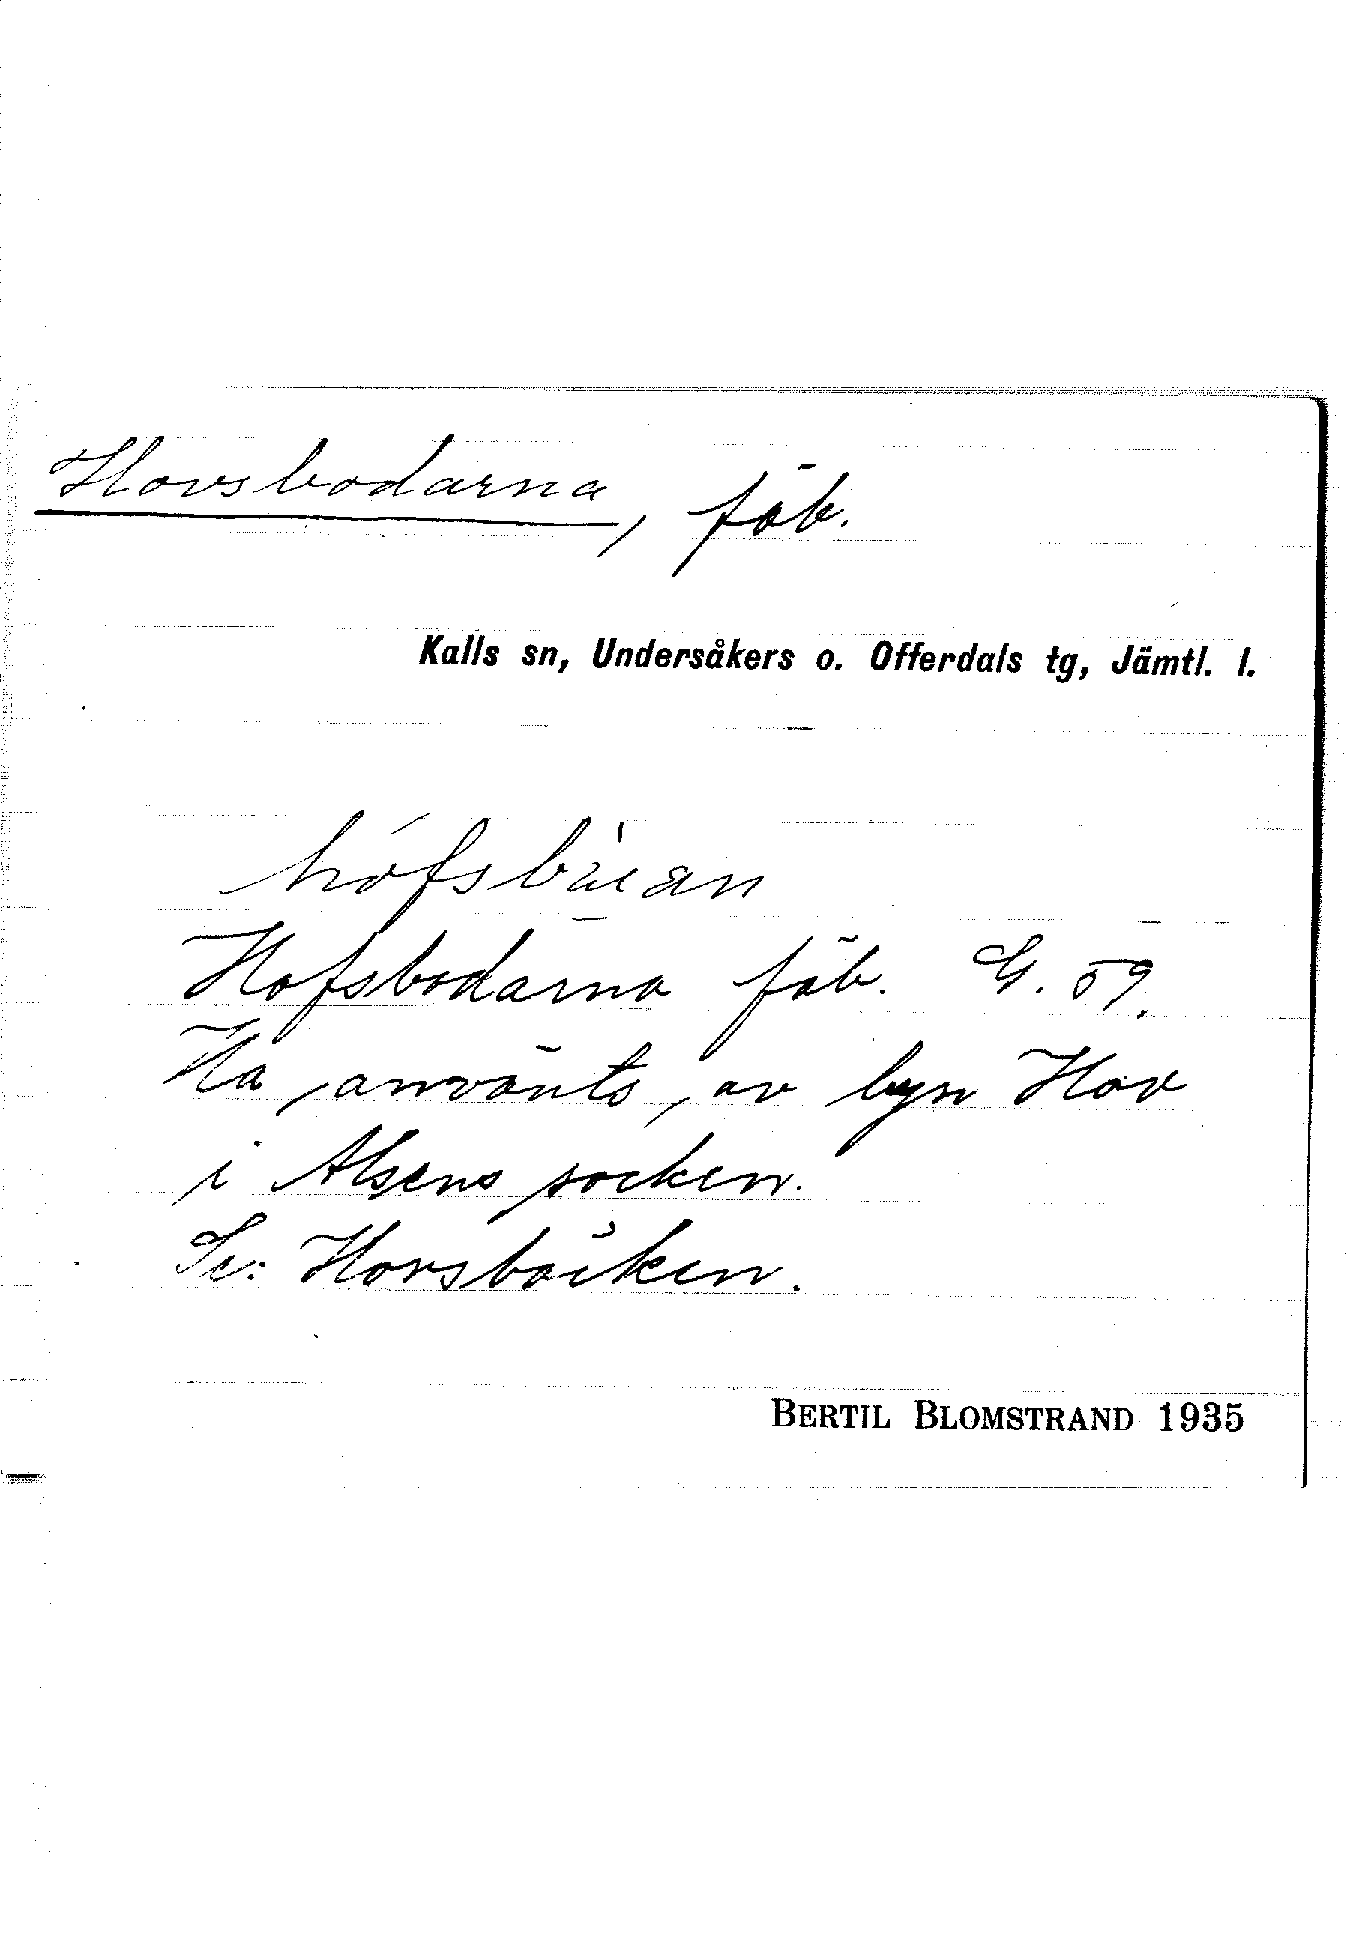 Hovsbodarna, fäb.
Kalls sn, Undersåkers o. Offerdals tg, Jämtl. l.
Hofsbodarna fäb. G. 59.
Ha använts av byn Hov
i Alsens socken.
Se: Hovsbäcken.
BERTIL BLOMSTRAND 1935